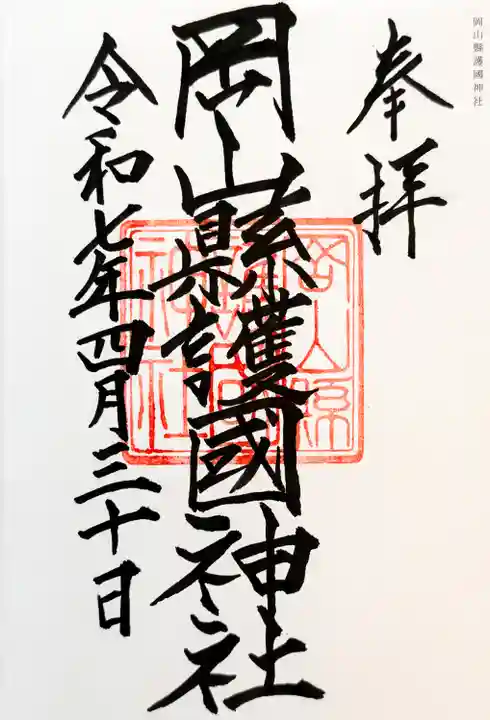 岡山縣護國神社
奉拝
岡山縣護國神社
岡山縣護國神社
令和七年四月三十日